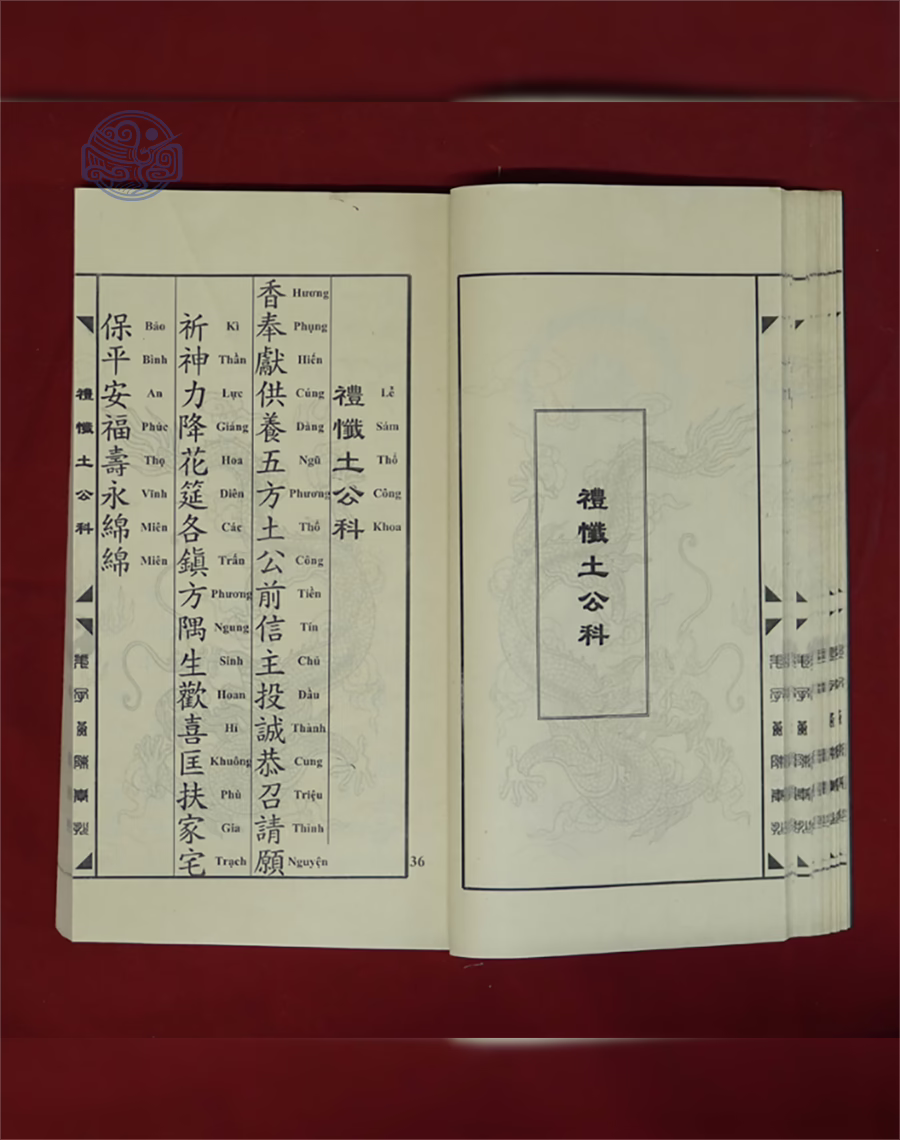 禮懺土公科
禮懺土公科
Lễ Sám Thổ Công Khoa
香奉獻供養五方土公前信主投誠恭召請願
Hương Phụng Hiến Cúng Dàng Ngũ Phương Thổ Công Tiền Tín Chủ Đầu Thành Cung Triệu Thỉnh Nguyện
祈神力降花筵各鎮方隅生歡喜匡扶家宅
Kì Thần Lực Giáng Hoa Diên Các Trấn Phương Ngung Sinh Hoan Hỉ Khuông Phù Gia Trạch
保平安福壽永綿綿
Bảo Bình An Phúc Thọ Vĩnh Miên Miên
禮懺土公科
36